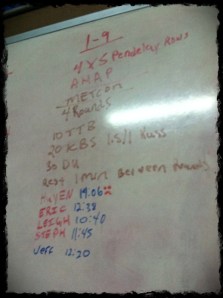 1-9
4 x 5 Pendelay Rows
AMRAP
METCON
4 Rounds
10 TTB
20 KBS 1.5/1
30 DU
Rest 1 min Between Rounds
19.06
ERIC 12:38
LEIGH 10:40
STEPH 11:45
Jeff 12:20